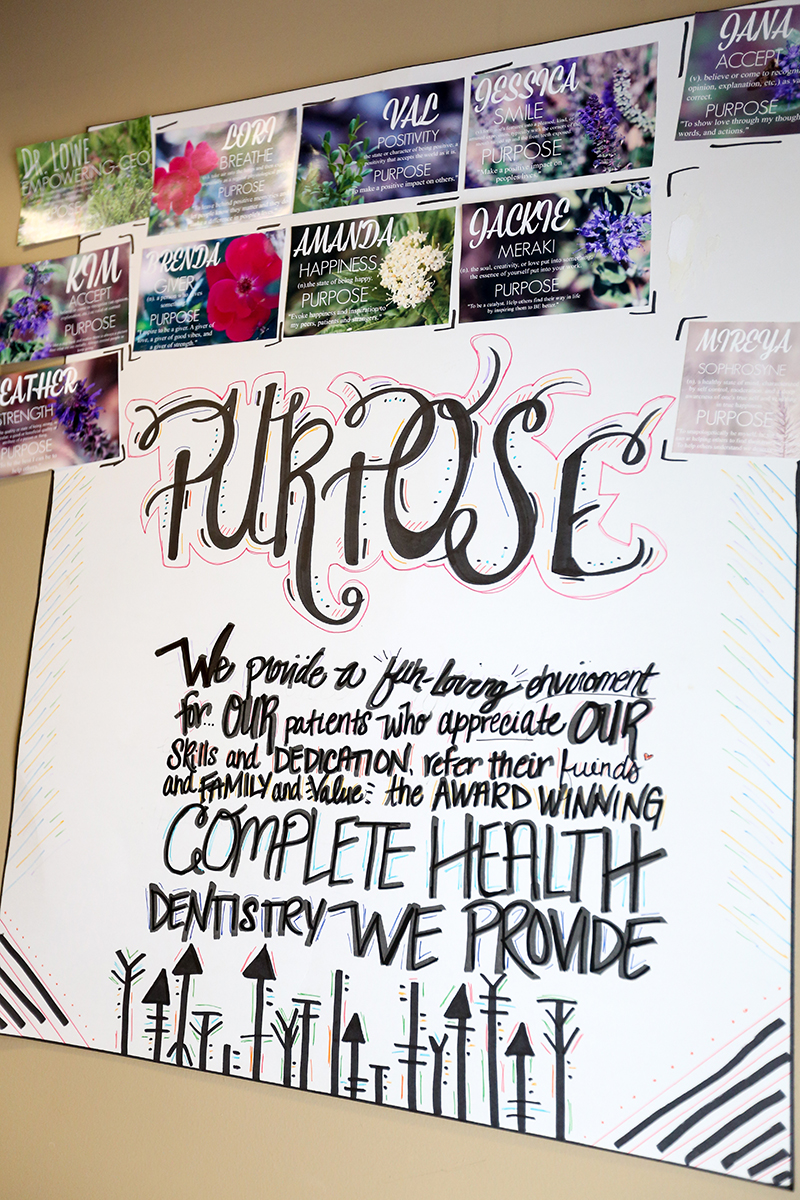 JANA
ACCEPT
(v). believe or come to recogn
opinion, explanation, etc.) as va
correct.
PURPOSE
"To show love through my though
words, and actions."
JESSICA
SMILE
PURPOSE
"Make a positive impact on
people's lives."
VAL
POSITIVITY
the state or character of being positive; a
positivity that accepts the world as it is.
PURPOSE
"To make a positive impact on others."
LORI
BREATHE
PUPROSE
DR. LOWE
EMPOWERING
KIM
ACCEPT
PURPOSE
BRENDA
GIVER
(n). a person who gives
something
PURPOSE
"Purpose to be a giver. A giver of
love, a giver of good vibes, and
a giver of strength."
AMANDA
HAPPINESS
(n).the state of being happy.
PURPOSE
"Evoke happiness and inspiration to
my peers, patients and strangers."
JACKIE
MERAKI
(n). the soul, creativity, or love put into something;
the essence of yourself put into your work.
PURPOSE
"To be a catalyst. Help others find their way in life
by inspiring them to BE better"
EATHER
STRENGTH
PURPOSE
MIREYA
SOPHROSYNE
PURPOSE
PURPOSE
We provide a fun-loving enviroment
for... OUR patients who appreciate OUR
Skills and DEDICATION, refer their friends
and FAMILY and Value the AWARD WINNING
COMPLETE HEALTH
DENTISTRY WE PROVIDE